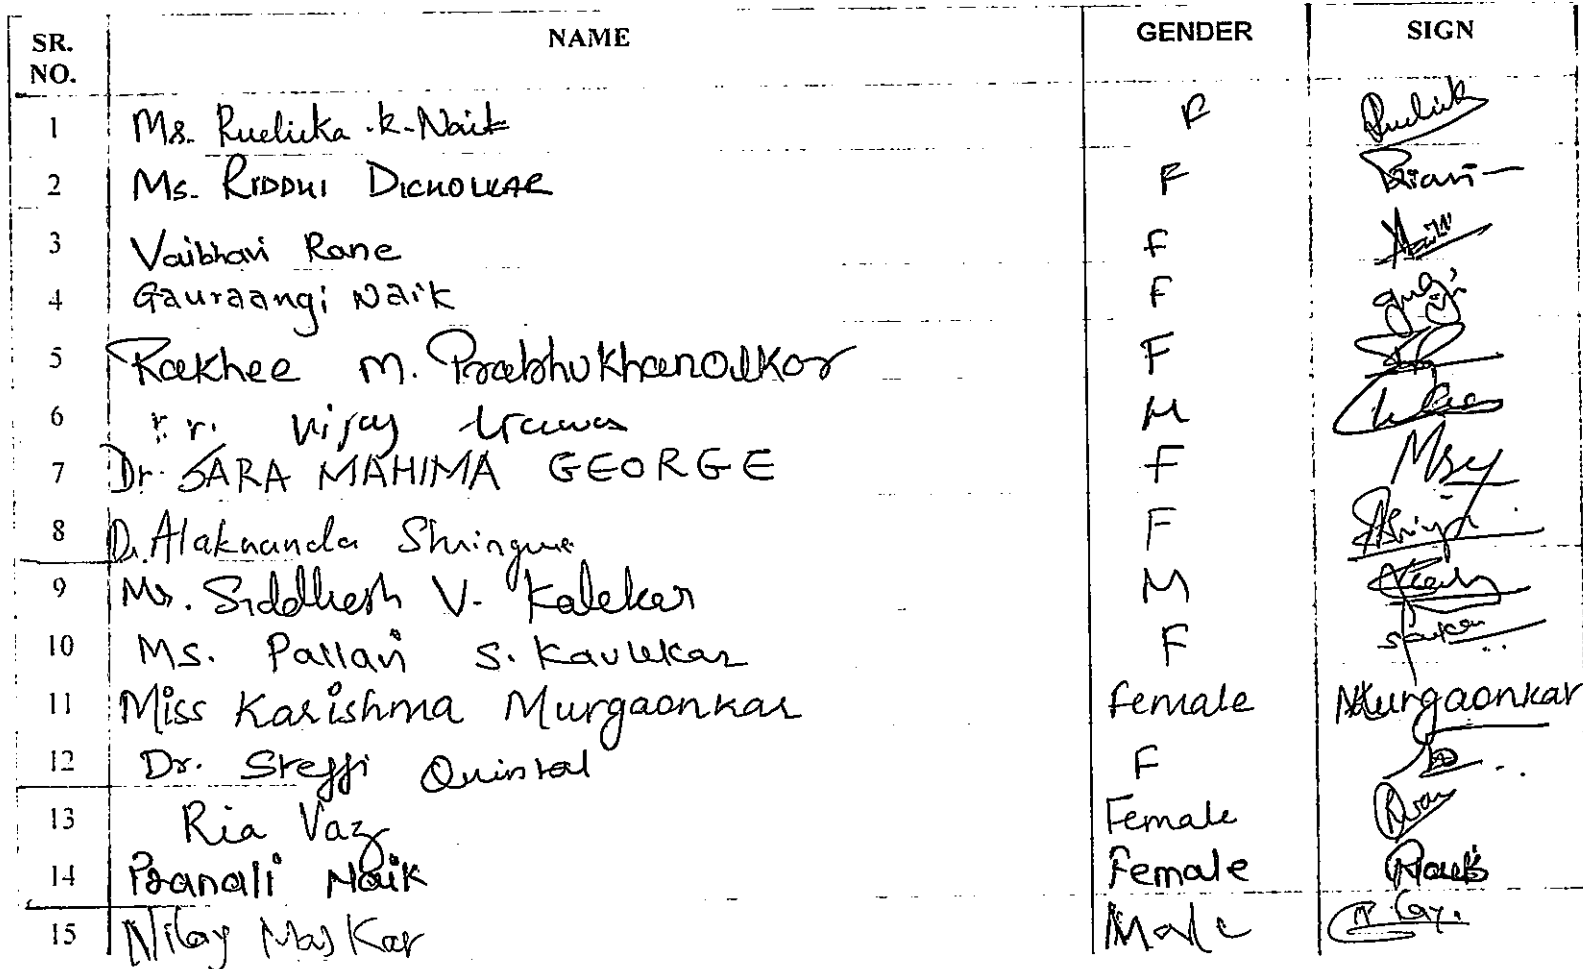 SR. NO. NAME GENDER SIGN
1 Ms. Ruelicka .K. Naik F
2 Ms. RIDDHI DICHOLKAR F
3 Vaibhavi Rane F
4 Gauraangi Naik F
5 Rakhee M. Prabhukhanolkar F
6 Vijay M
7 Dr. SARA MAHIMA GEORGE F
8 Dr. Alaknanda Shringare F
9 Mr. Siddhesh V. Kalekar M
10 Ms. Pallavi S. Kavlekar F
11 Miss Karishma Murgaonkar female Murgaonkar
12 Dr. Steffi Quintal F
13 Ria Vaz Female
14 Pranali Naik Female Naik
15 Nilay Maskar Male